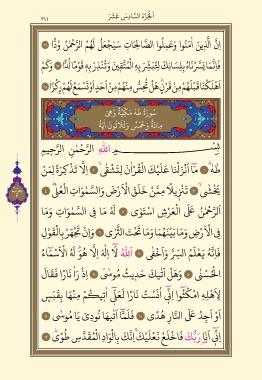 اَلْجُزْءُ السَّادِسَ عَشَرَ
٣١١
اِنَّ الَّذ۪ينَ اٰمَنُوا وَعَمِلُوا الصَّالِحَاتِ سَيَجْعَلُ لَهُمُ الرَّحْمٰنُ وُدًّا
فَاِنَّمَا يَسَّرْنَاهُ بِلِسَانِكَ لِتُبَشِّرَ بِهِ الْمُتَّق۪ينَ وَتُنْذِرَ بِه۪ قَوْمًا لُدًّا وَكَمْ
اَهْلَكْنَا قَبْلَهُمْ مِنْ قَرْنٍ هَلْ تُحِسُّ مِنْهُمْ مِنْ اَحَدٍ اَوْ تَسْمَعُ لَهُمْ رِكْزًا
سُورَةُ طٰهٰ مَكِّيَّةٌ وَهِيَ
مِائَةٌ وَخَمْسٌ وَثَلَاثُونَ اٰيَةً
بِسْمِ اللّٰهِ الرَّحْمٰنِ الرَّح۪يمِ
طٰهٰ مَٓا اَنْزَلْنَا عَلَيْكَ الْقُرْاٰنَ لِتَشْقٰى اِلَّا تَذْكِرَةً لِمَنْ
يَخْشٰى تَنْز۪يلًا مِمَّنْ خَلَقَ الْاَرْضَ وَالسَّمٰوَاتِ الْعُلٰى
اَلرَّحْمٰنُ عَلَى الْعَرْشِ اسْتَوٰى لَهُ مَا فِي السَّمٰوَاتِ وَمَا
فِي الْاَرْضِ وَمَا بَيْنَهُمَا وَمَا تَحْتَ الثَّرٰى وَاِنْ تَجْهَرْ بِالْقَوْلِ
فَاِنَّهُ يَعْلَمُ السِّرَّ وَاَخْفٰى اَللّٰهُ لَٓا اِلٰهَ اِلَّا هُوَ لَهُ الْاَسْمَٓاءُ
الْحُسْنٰى وَهَلْ اَتٰيكَ حَد۪يثُ مُوسٰى اِذْ رَاٰ نَارًا فَقَالَ
لِاَهْلِهِ امْكُثُٓوا اِنّ۪ٓي اٰنَسْتُ نَارًا لَعَلّ۪ٓي اٰت۪يكُمْ مِنْهَا بِقَبَسٍ
اَوْ اَجِدُ عَلَى النَّارِ هُدًى فَلَمَّٓا اَتٰيهَا نُودِيَ يَا مُوسٰى
اِنّ۪ٓي اَنَا۬ رَبُّكَ فَاخْلَعْ نَعْلَيْكَ اِنَّكَ بِالْوَادِ الْمُقَدَّسِ طُوًى